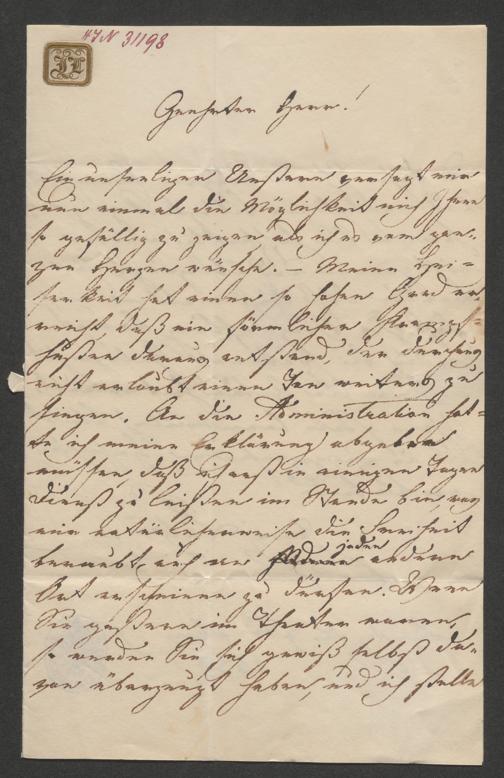 HJN 31198
JL
Geehrter Herr!
Ein unseeliger Unstern versagt mir
nun einmal die Möglichkeit mich Ihnen
so gefällig zu zeigen als ich es vom gan-
zen Herzen wünsche. – Meine Hei-
serkeit hat einen so hohen Grad er-
reicht, daß ein förmlicher Krampf-
husten daraus entstand, der durchaus
nicht erlaubt einen Ton weiters zu
singen. An die Administration hat-
te ich meine Erklärung abgeben
müssen, daß ich erst in einigen Tagen
Dienst zu leisten im Stande bin, was
mir natürlicherweise die Freiheit
beraubt, auch an jeden andern
Ort erscheinen zu dürfen. Wenn
Sie gestern im Theater waren,
so werden Sie sich gewiß selbst da-
von überzeugt haben, und ich stelle